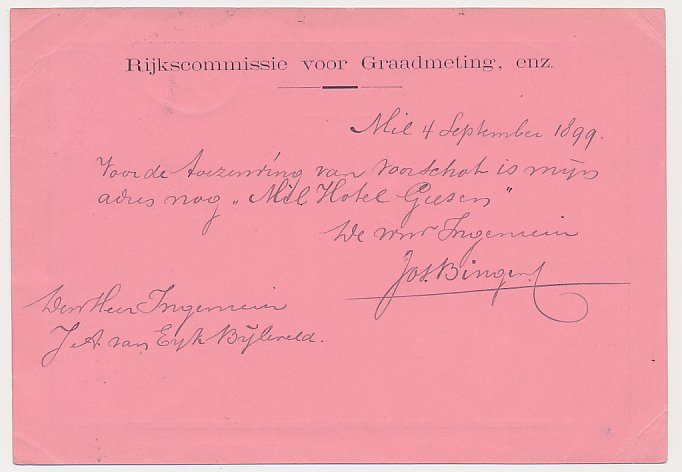 Rijkscommissie voor Graadmeting, enz.
Mil 4 September 1899.
Voor de toezending van voorschot is mijn
adres nog „Mill Hotel Giesen"
De Ingenieur
Jos. Bingen
Den Heer Ingenieur
J. A. van Eyk Bijleveld.